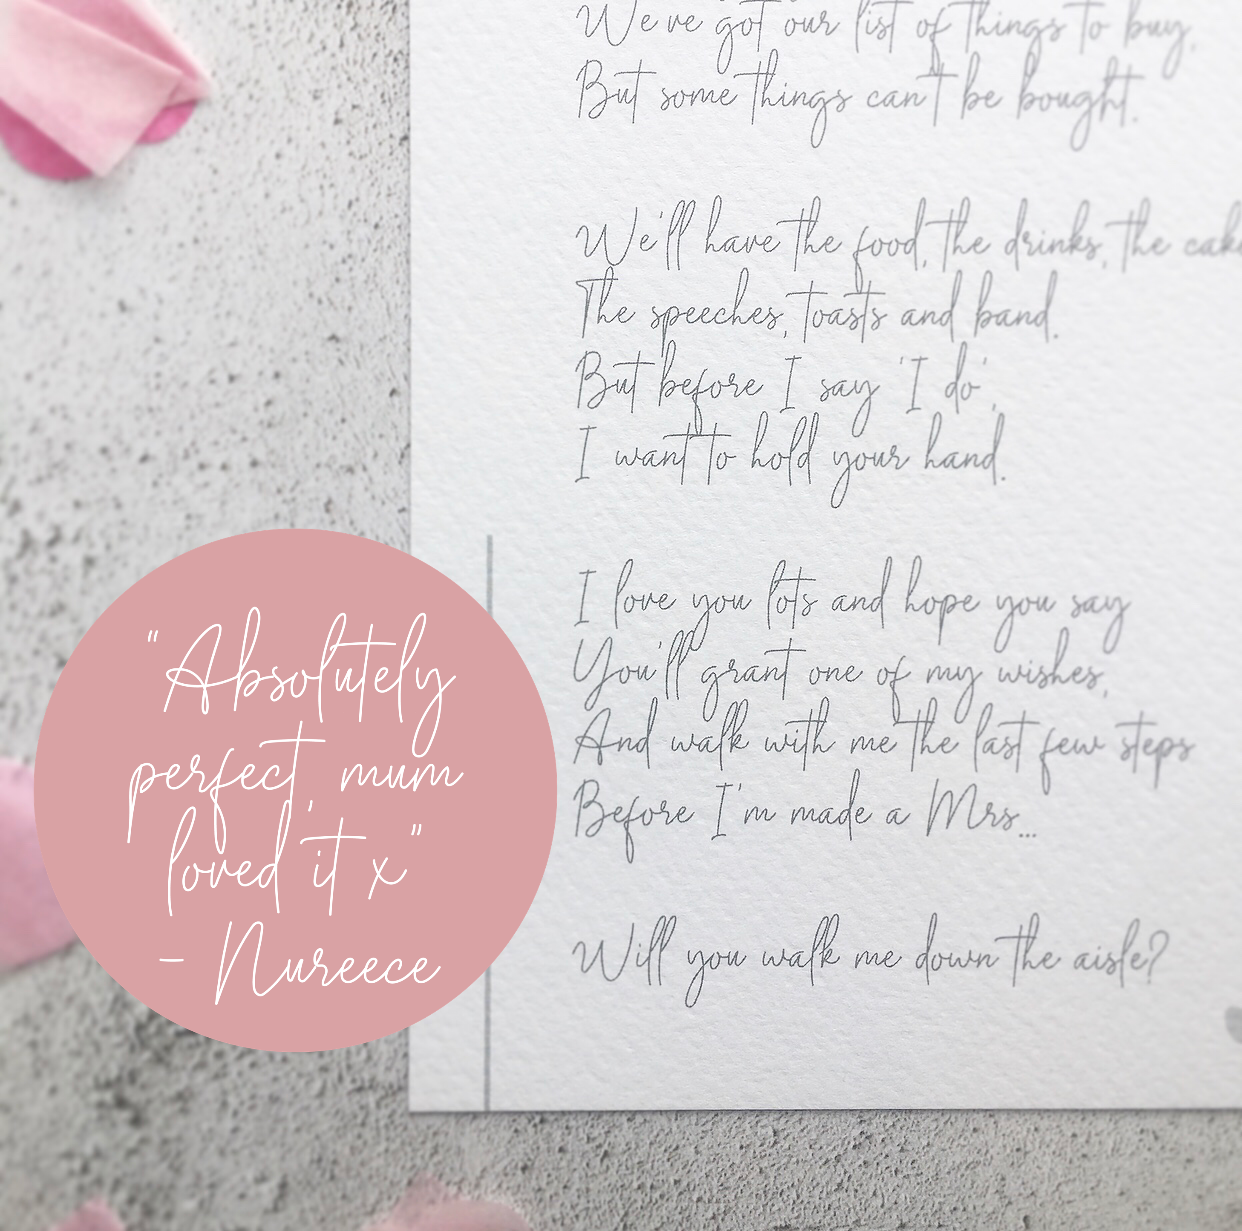 We've got our list of things to buy,
But some things can't be bought.
We'll have the food, the drinks, the cake
The speeches, toasts and band.
But before I say 'I do',
I want to hold your hand.
I love you lots and hope you say
You'll grant one of my wishes,
And walk with me the last few steps
Before I'm made a Mrs...
Will you walk me down the aisle?
"Absolutely
perfect, mum
loved it x"
- Nureece